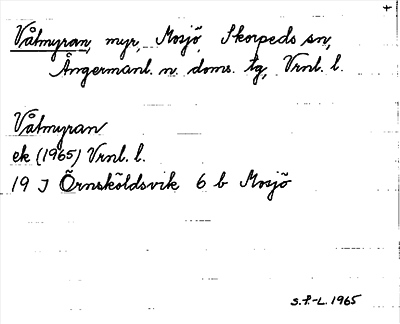 +
Våtmyran, myr, Mosjö, Skorpeds sn,
Ångermanl. n. doms. tg, Vrnl. l.
Våtmyran
ek (1965) Vrnl. l.
19 J Örnsköldsvik 6 b Mosjö
S.F.-L. 1965